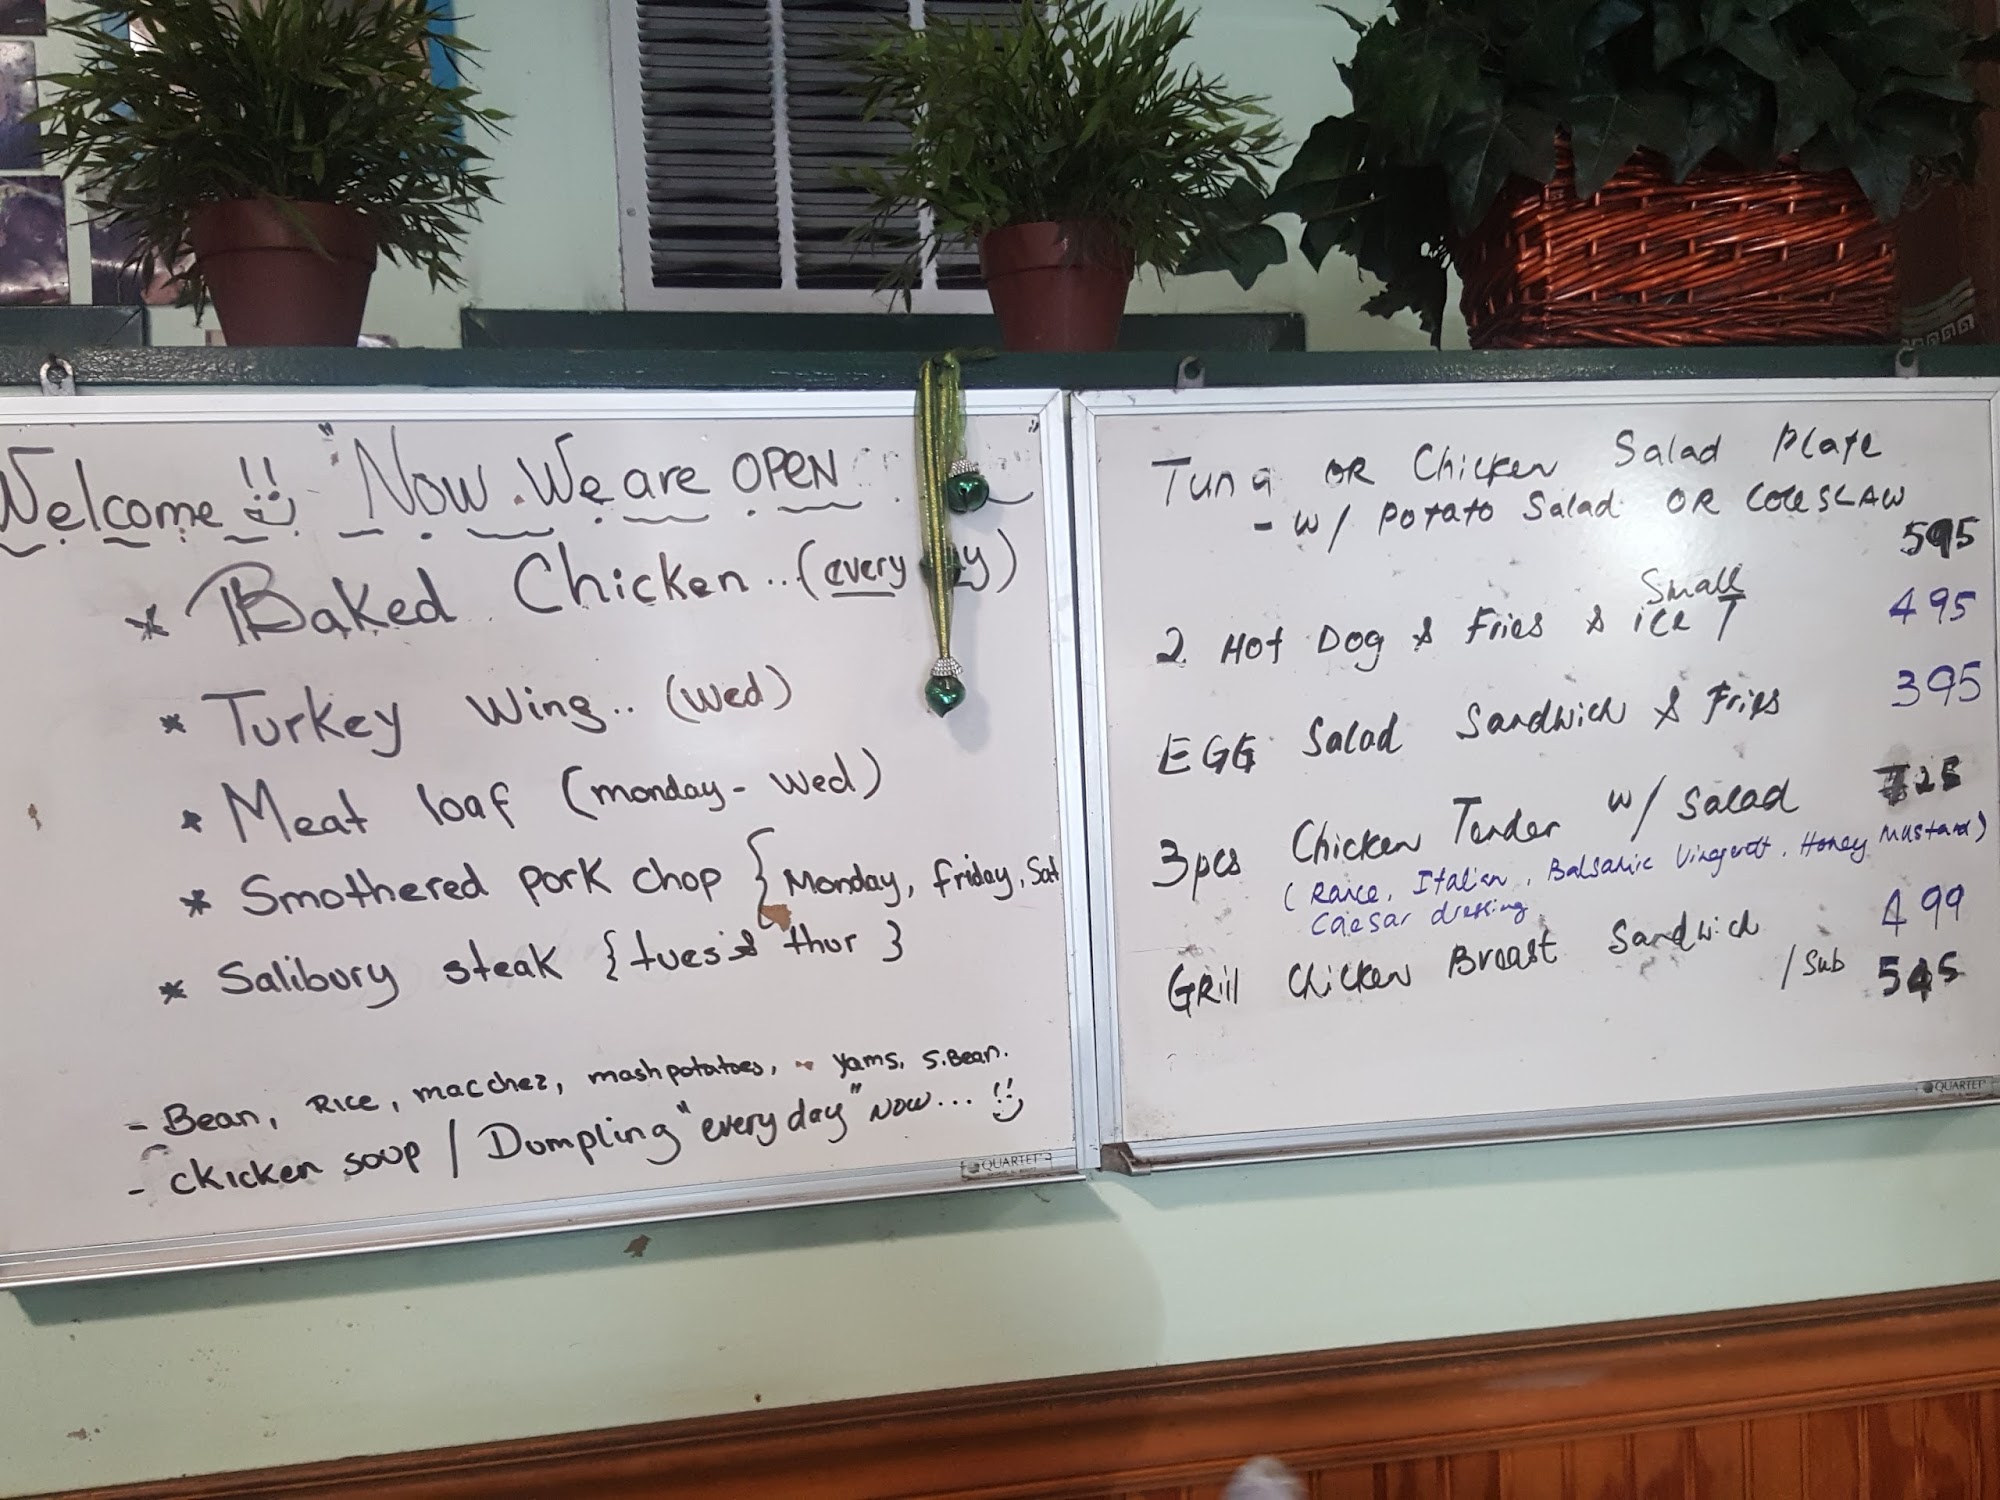 Welcome !! "Now We are OPEN
* Baked Chicken .. (every y)
* Turkey Wing .. (Wed)
* Meat loaf (monday - wed)
* Smothered pork chop { Monday, friday, Sat
* Salibury steak { tues & thur }
- Bean, Rice, mac chez, mashpotatoes, yams, S.Bean.
- chicken soup / Dumpling "every day" NOW...
QUARTET
Tuna OR Chicken Salad Plate
- w/ Potato Salad OR COLESLAW
595
2 Hot Dog & Fries & Small ice T 495
EGG Salad Sandwich & Fries 395
3pcs Chicken Tender w/ Salad 725
(Rance, Italian, Balsamic Vinegrett, Honey Mustard)
Caesar dressing
Grill Chicken Breast Sandwich 499
/Sub 545
QUARTET